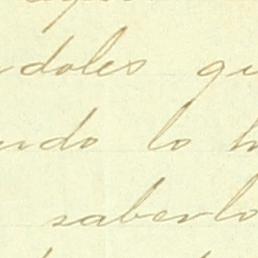 ndoles qu
ndo lo h
saberlo